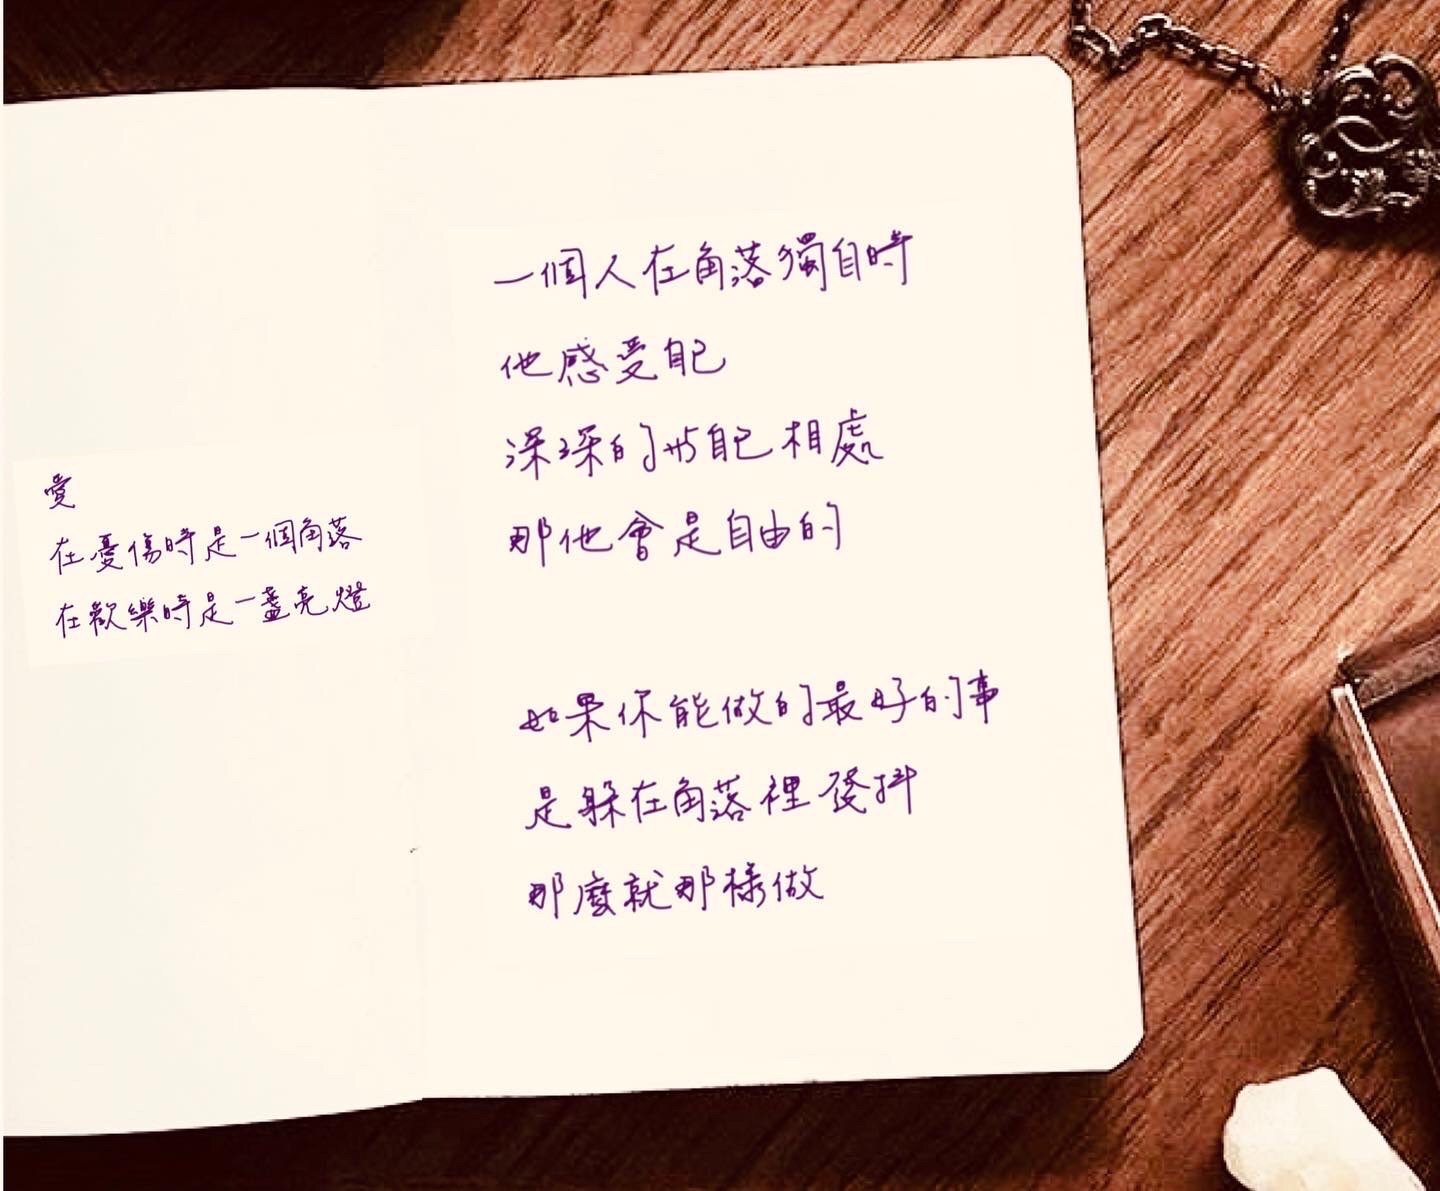 愛
在憂傷時是一個角落
在歡樂時是一盞亮燈
一個人在角落獨自時
他感受自己
深深的与自己相處
那他會是自由的
如果你能做的最好的事
是躲在角落裡發抖
那麼就那樣做